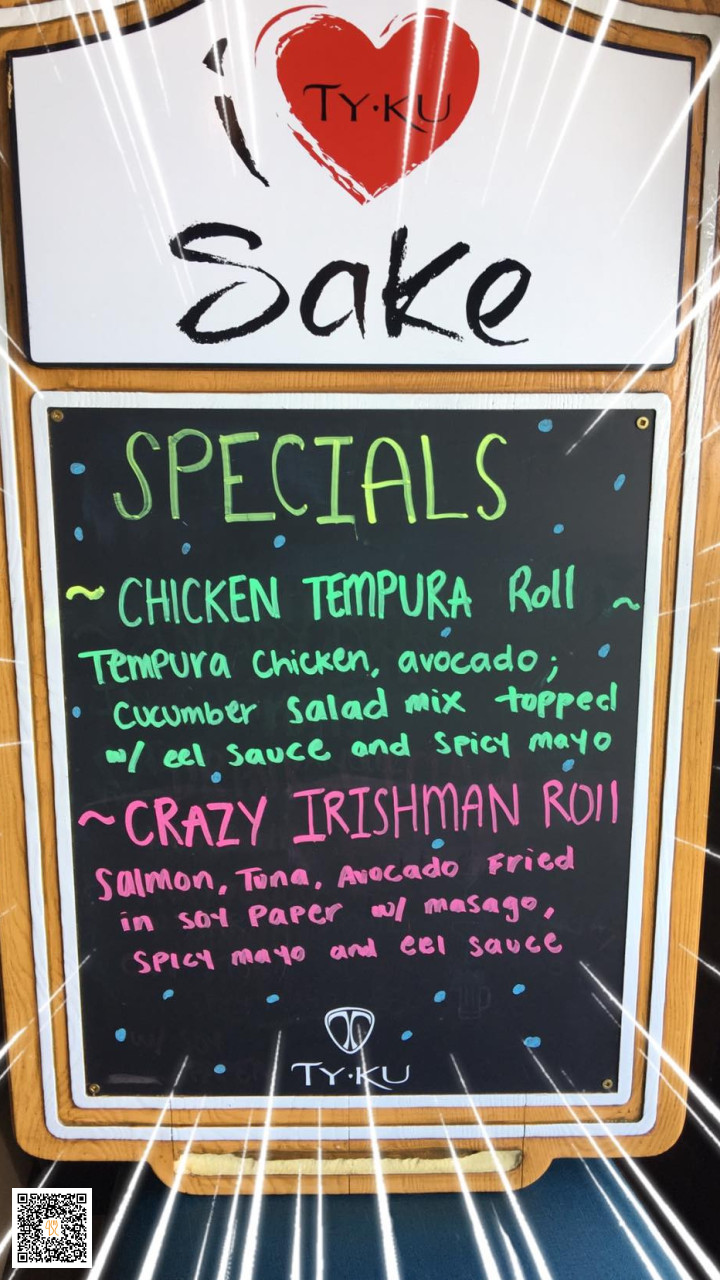 i TY·KU
Sake
SPECIALS
~ CHICKEN TEMPURA Roll ~
Tempura Chicken, avocado;
Cucumber Salad mix topped
w/ eel sauce and spicy mayo
~CRAZY IRISHMAN ROll
Salmon, Tuna, Avocado Fried
in soy Paper w/ masago,
spicy mayo and eel sauce
TY·KU